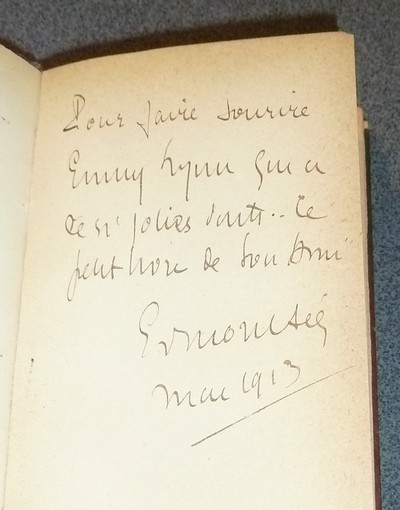 Pour faire sourire
Emmy Lynn qui a
de si jolies dents.. Ce
petit livre de son Ami
Edmond Sée
Mai 1913